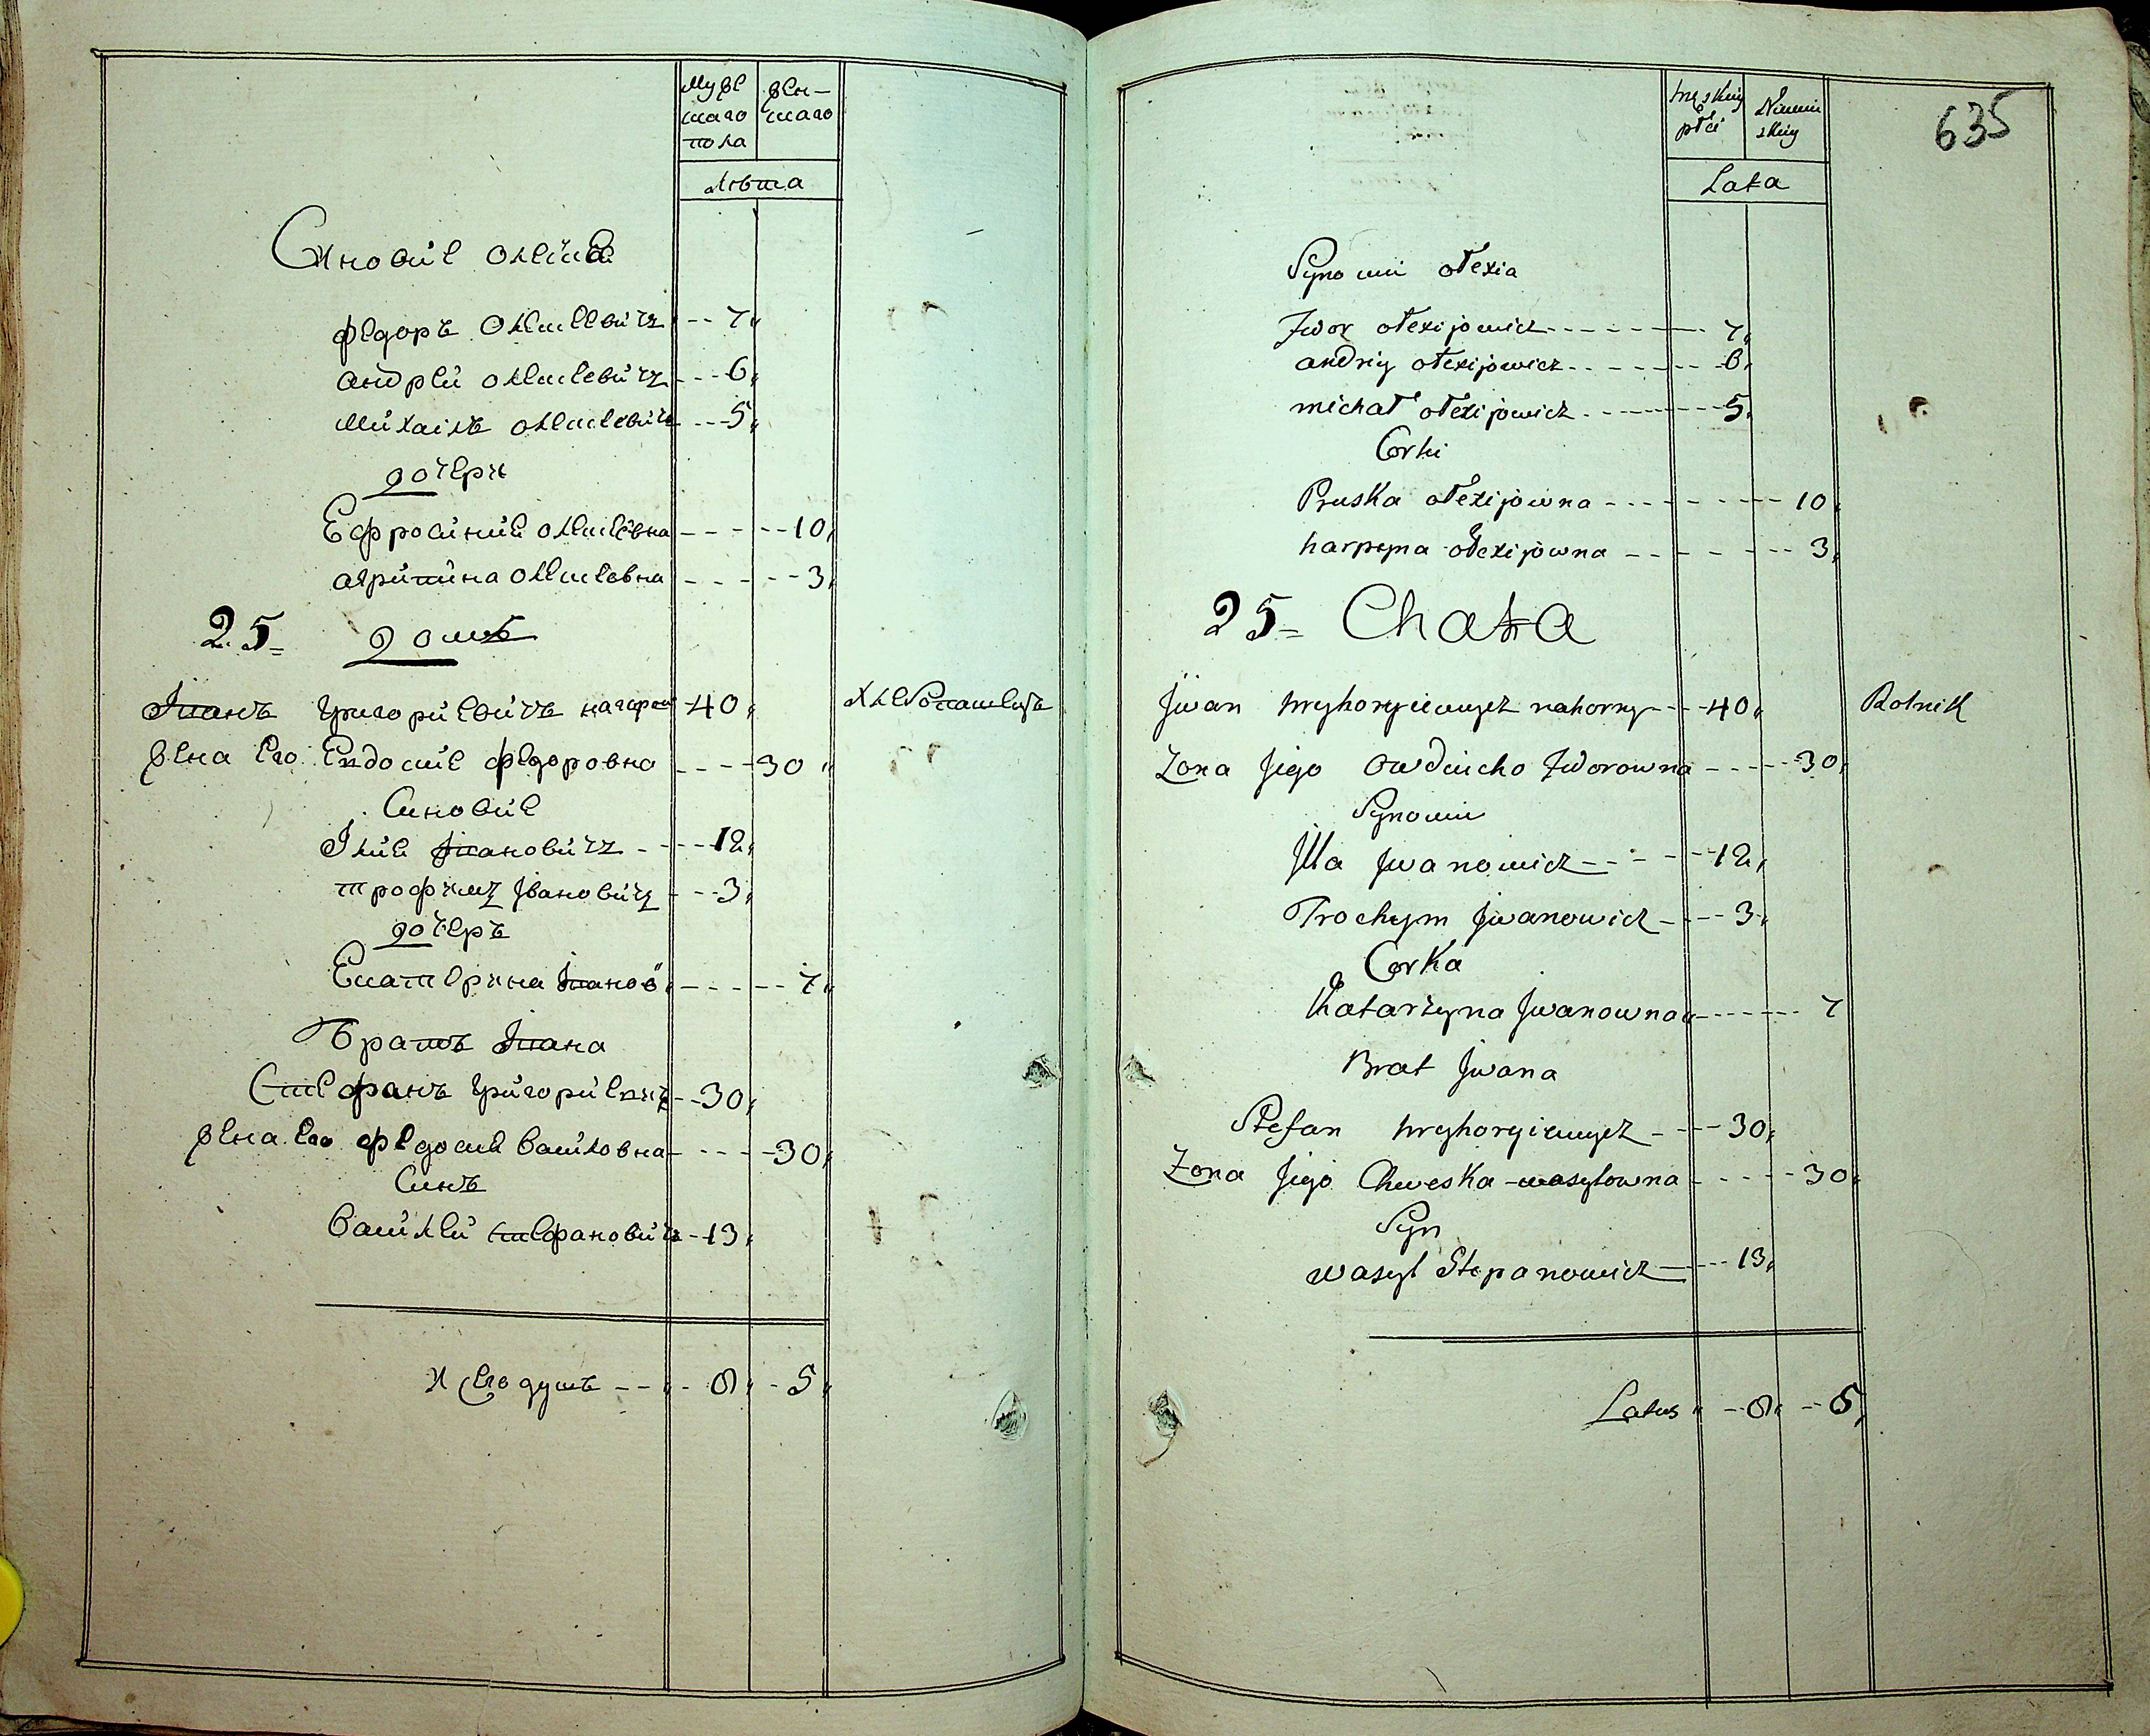 Муже
скаго
пола
жен-
скаго
Лѣта
Синовие Олекси
Федоръ Олексеевичъ -- 7,,
Андрей Олексеевичъ -- 6,,
Михаилъ Олексеевичъ -- 5,,
дочери
Ефросиния Олексеевна -- 10,,
Агрипина Олексеевна -- 3,,
25 = Домъ
Іванъ Григориевичъ нагорни 40,, Хлебопашецъ
жена его Евдосия Федоровна -- 30,,
Синовие
Ілия Івановичъ -- 12,,
трофимъ Івановичъ -- 3,,
дочеръ
Екатерина Іванов" -- 7,,
Братъ Івана
Стефанъ Григориевичъ -- 30,,
жена его Федосия Василовна -- 30,,
Синъ
Василий Стефановичъ -- 13,,
всего душъ -- 8,, -- 5,,
635
męzkiey
płci
Niewie
zkiey
Lata
Synowie ołexia
Fedor ołexijowicz -- 7,,
andriy ołexijowicz -- 6,,
michał ołexijowicz -- 5,,
Corki
Pruska ołexijowna -- 10,,
harpyna ołexijowna -- 3,,
25 = Chata
Jwan hryhoryiewycz nahorny -- 40,, Rolnik
Zona Jego owdiucho Fedorowna -- 30,,
Synowie
Jlla Jwanowicz -- 12,,
Trochym Jwanowicz -- 3,,
Corka
Katarzyna Jwanowna -- 7
Brat Jwana
Stefan hryhoryiewycz -- 30,,
Zona Jego Chweska wasylowna -- 30,,
Syn
wasyl Stepanowicz -- 13,,
Latus -- 8,, -- 5,,